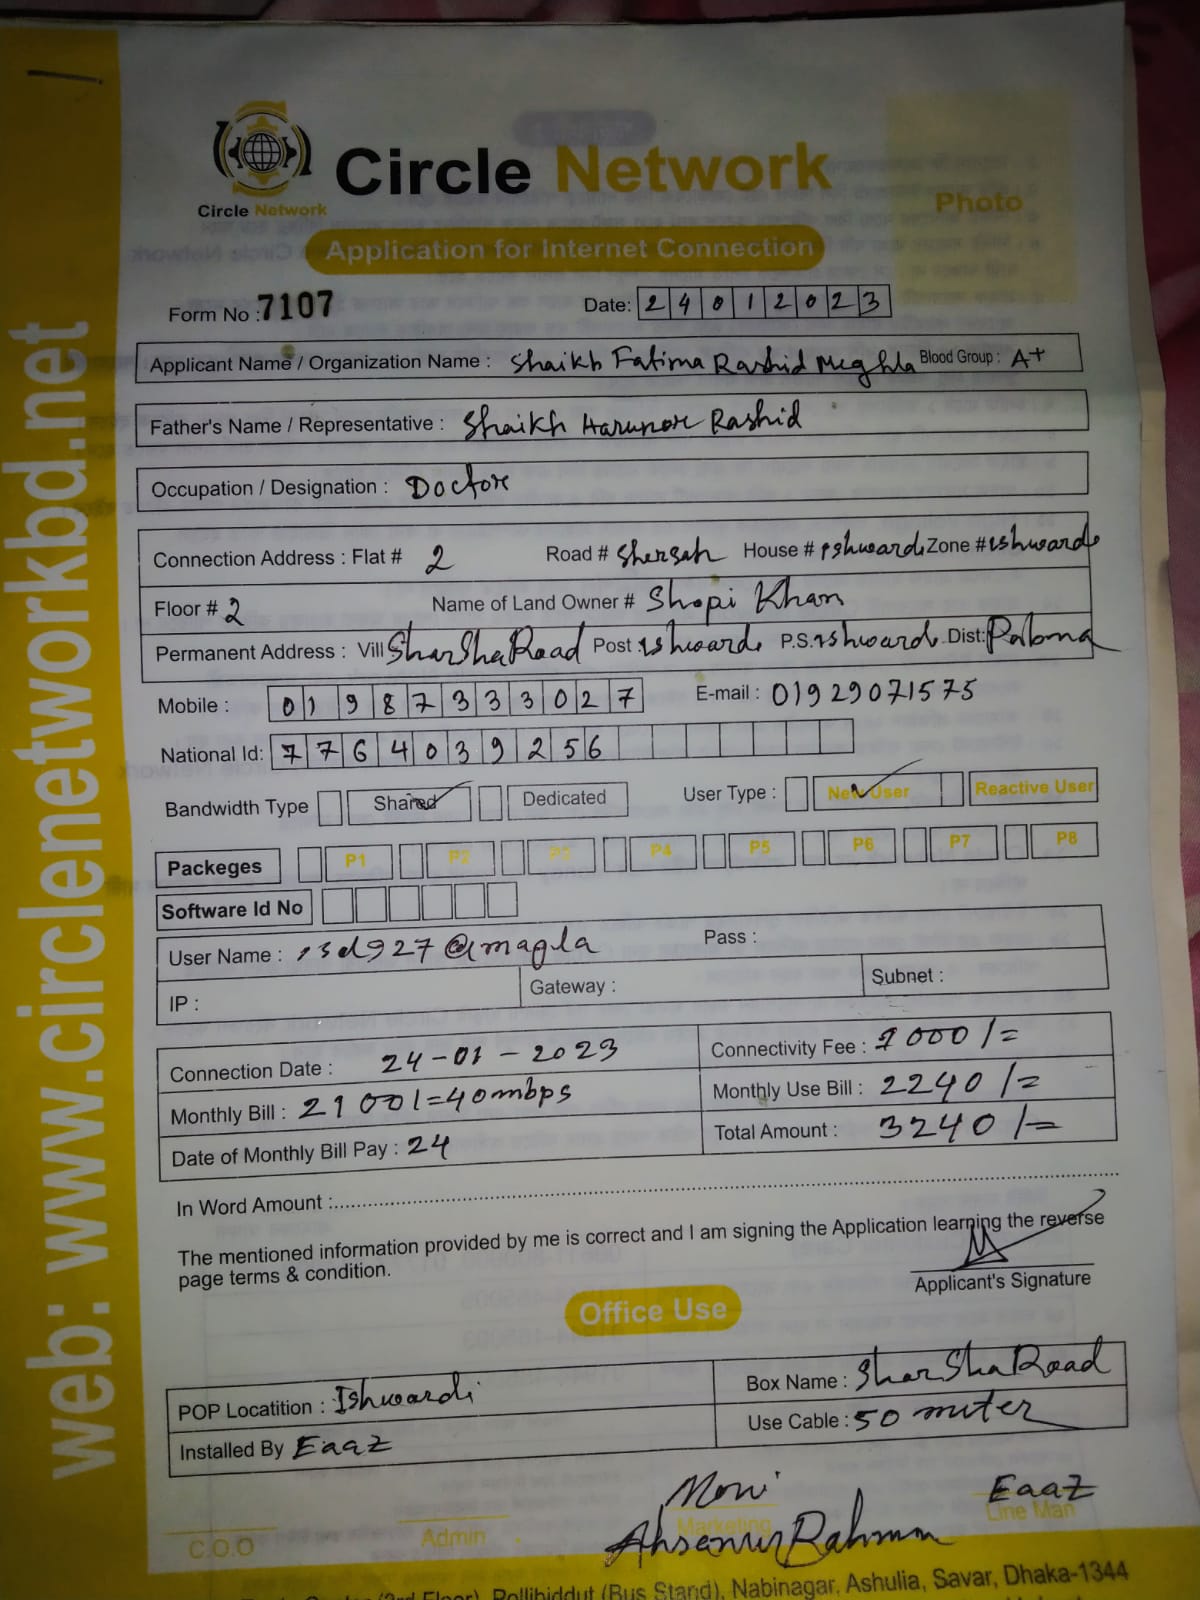 web: www.circlenetworkbd.net
Circle Network
Circle Network
Photo
Application for Internet Connection
Form No : 7107 Date: 24012023
Applicant Name / Organization Name : Shaikh Fatima Rashid Meghla Blood Group : A+
Father's Name / Representative : Shaikh Harunor Rashid
Occupation / Designation : Doctor
Connection Address : Flat # 2 Road # Shersah House # ishwardi Zone # ishwardi
Floor # 2 Name of Land Owner # Shopi Khan
Permanent Address : Vill SharSha Road Post : ishwardi P.S. ishwardi Dist: Pabna
Mobile : 01987333027 E-mail : 01929071575
National Id: 7764039256
Bandwidth Type Shared Dedicated User Type : New User Reactive User
Packeges P1 P2 P3 P4 P5 P6 P7 P8
Software Id No
User Name : isd927@magla Pass :
IP : Gateway : Subnet :
Connection Date : 24-01-2023 Connectivity Fee : 1000/=
Monthly Bill : 2100/=40mbps Monthly Use Bill : 2240/=
Date of Monthly Bill Pay : 24 Total Amount : 3240/=
In Word Amount :
The mentioned information provided by me is correct and I am signing the Application learning the reverse
page terms & condition.
Applicant's Signature
Office Use
POP Locatition : Ishwardi Box Name : SharSha Road
Installed By Eaaz Use Cable : 50 muter
Moni Eaaz
C.O.O Admin Marketing Line Man
Ahsanur Rahman
Floor), Pollibiddut (Bus Stand), Nabinagar, Ashulia, Savar, Dhaka-1344